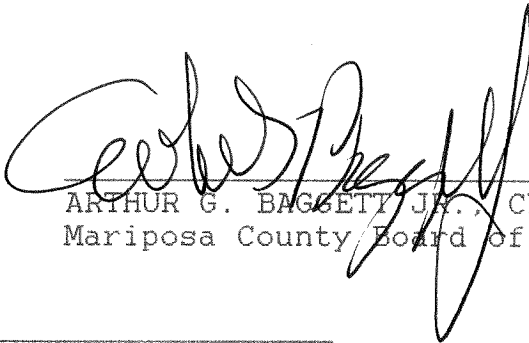 ARTHUR G. BAGGETT JR., C
Mariposa County Board of